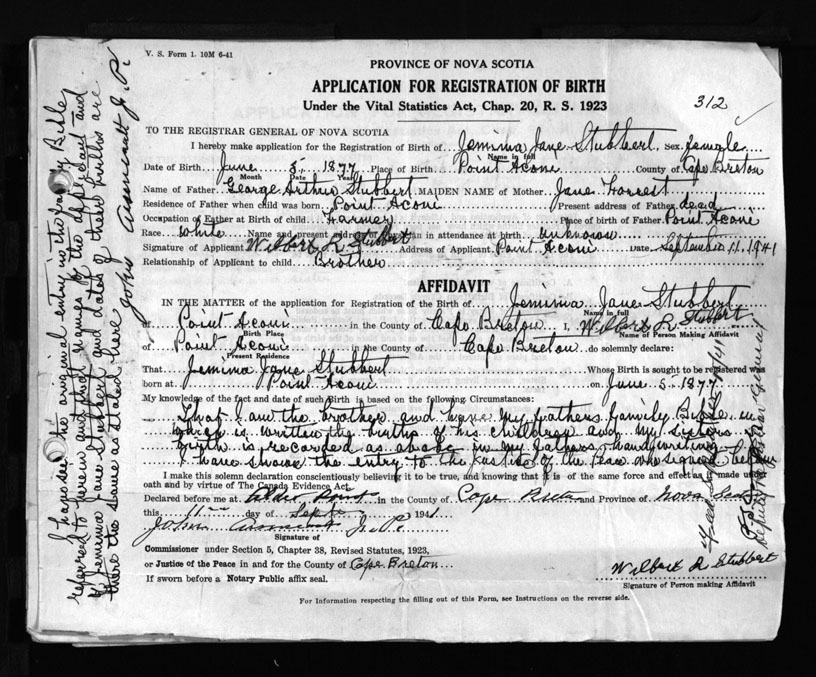 V. S. Form 1. 10M 6-41
PROVINCE OF NOVA SCOTIA
APPLICATION FOR REGISTRATION OF BIRTH
Under the Vital Statistics Act, Chap. 20, R. S. 1923
312
TO THE REGISTRAR GENERAL OF NOVA SCOTIA
I hereby make application for the Registration of Birth of Jemima Jane Stubbert, Sex female
Name in full
Date of Birth June 5 1877 Place of Birth Point Aconi County of Cape Breton
Month Date Year
Name of Father George Arthur Stubbert MAIDEN NAME of Mother Jane Forrest
Residence of Father when child was born Point Aconi Present address of Father dead
Occupation of Father at Birth of child Farmer Place of birth of Father Point Aconi
Race White Name and present address of Physician in attendance at birth unknown
Signature of Applicant Wilbert R Stubbert Address of Applicant Point Aconi Date September 11, 1941
Relationship of Applicant to child Brother
AFFIDAVIT
IN THE MATTER of the application for Registration of the Birth of Jemima Jane Stubbert
Name in full
of Point Aconi in the County of Cape Breton I, Wilbert R Stubbert
Birth Place Name of Person Making Affidavit
of Point Aconi in the County of Cape Breton do solemnly declare:
Present Residence
That Jemima Jane Stubbert Whose Birth is sought to be registered was
born at Point Aconi on June 5, 1877
My knowledge of the fact and date of such Birth is based on the following Circumstances:
That I am the brother and have my fathers family Bible in
which is written the births of his children and my sisters
birth is recorded as above in my fathers handwriting
I have shown the entry to the Justice of the Peace who signed
I make this solemn declaration conscientiously believing it to be true, and knowing that it is of the same force and effect as if made under
oath and by virtue of The Canada Evidence Act.
Declared before me at in the County of Cape Breton and Province of Nova Scotia
this 11 day of Sept 1941
John J. P.
Signature of
Commissioner under Section 5, Chapter 38, Revised Statutes, 1923,
or Justice of the Peace in and for the County of Cape Breton
If sworn before a Notary Public affix seal.
Wilbert R Stubbert
Signature of Person making Affidavit
For Information respecting the filling out of this Form, see Instructions on the reverse side.
I have seen the original entry in the family Bible
referred to herein and that names of the applicant and
Jemima Jane Stubbert and dates of their births are
there the same as stated here
John J. P.
Deputy Registrar General